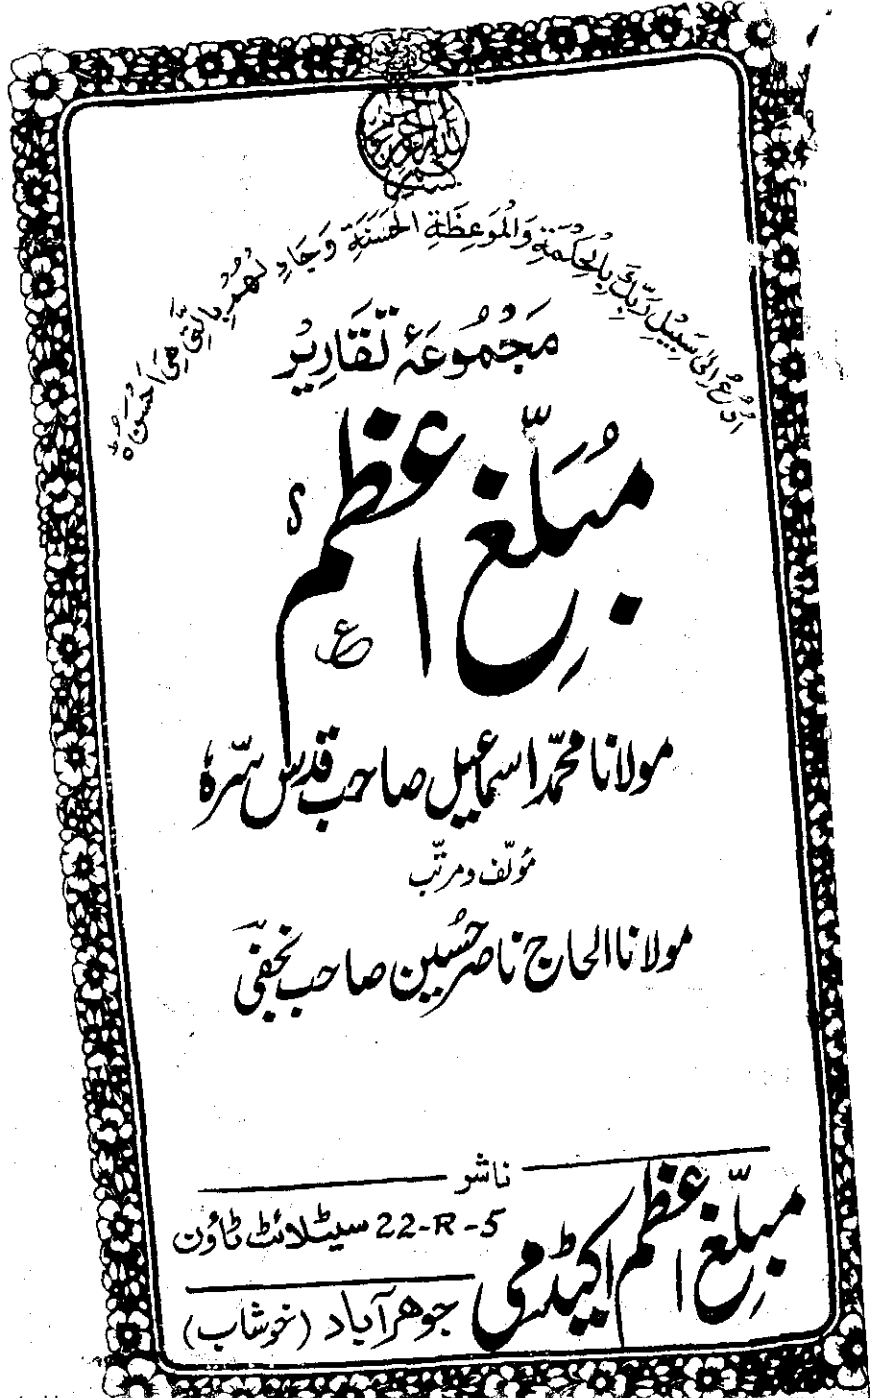 بسم الله الرحمن الرحيم
اُدْعُ اِلٰى سَبِيْلِ رَبِّكَ بِالْحِكْمَةِ وَالْمَوْعِظَةِ الْحَسَنَةِ وَجَادِلْهُمْ بِالَّتِيْ هِيَ اَحْسَنُ ط
مَجْمُوعَۂ تَقَارِیْر
مُبلّغِ اعظم
مولانا محمّد اسماعیل صاحب قدس سرّہٗ
مؤلّف و مرتّب
مولانا الحاج ناصر حُسین صاحب نجفی
ناشر
مبلّغِ اعظم اکیڈمی
22-R-5 سیٹلائٹ ٹاؤن
جوھرآباد (خوشاب)